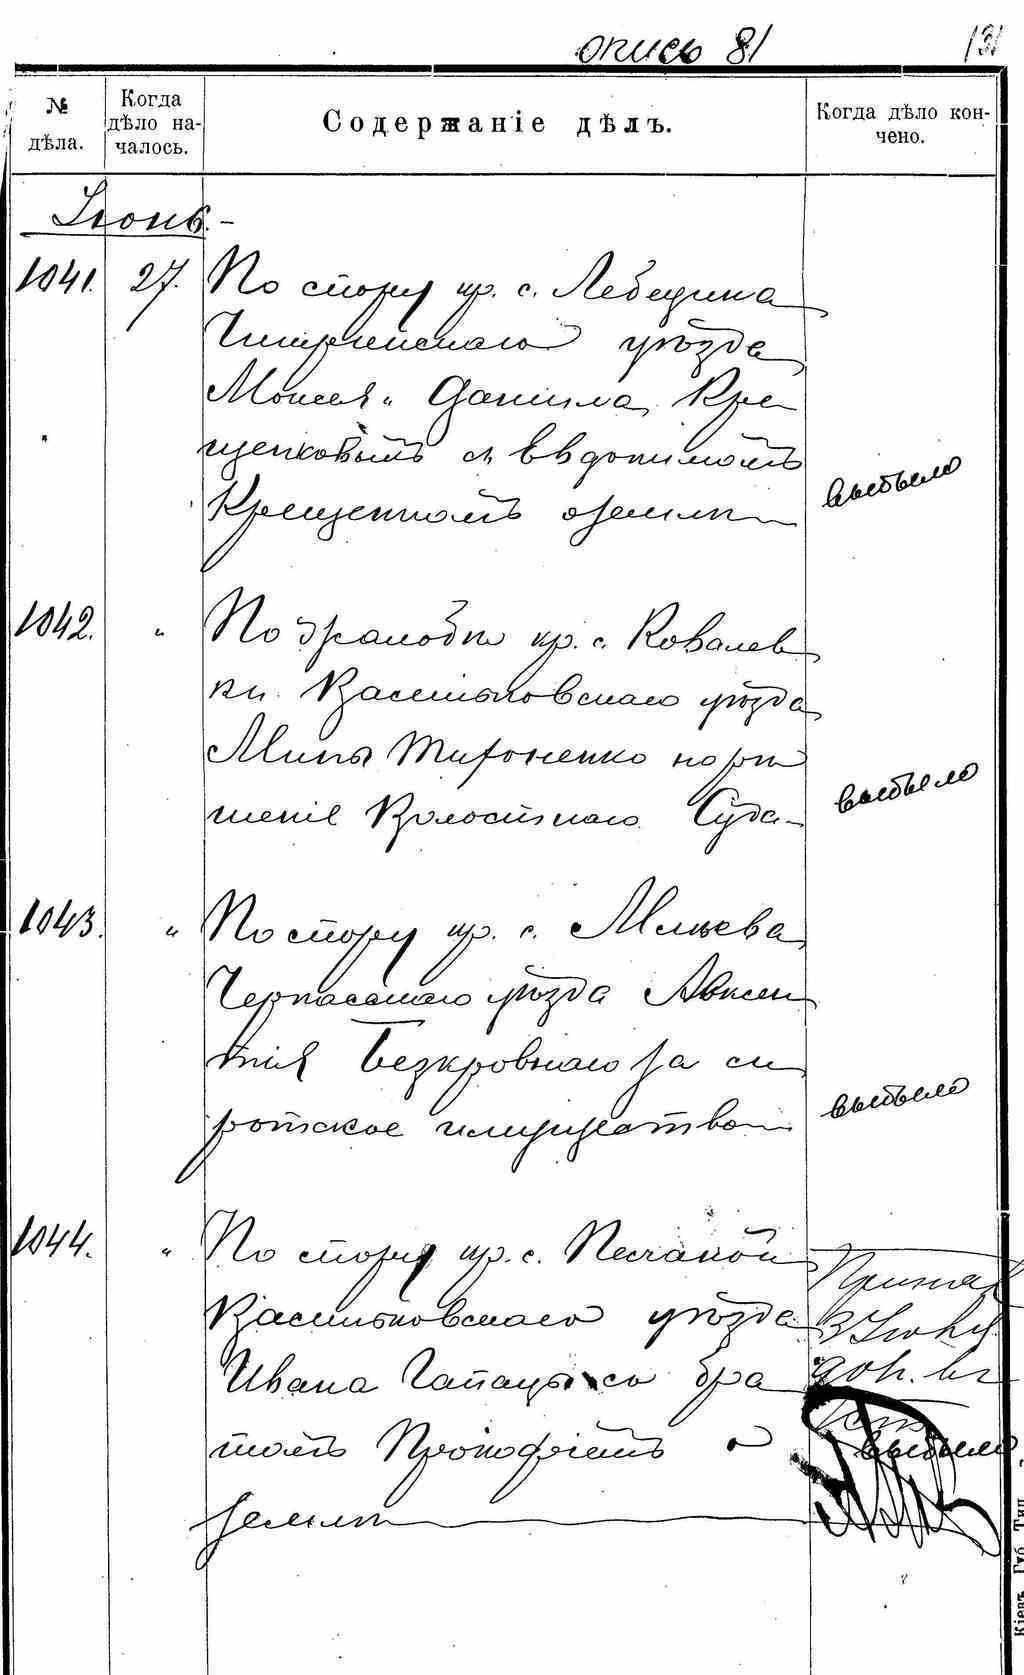 опись 81
131
№ дѣла.
Когда дѣло на-
чалось.
Содержаніе дѣлъ.
Когда дѣло кон-
чено.
Іюнь.-
1041. 27. По спору кр. с. Лебедина
Чигиринскаго уѣзда
Моисея и Данила Кре
щенковыхъ съ
Крещенкомъ о земли
выбыло
1042. " По жалобѣ кр. с. Ковалев
ки Васильковскаго уѣзда
Мины на рѣ
шеніе Волостнаго Суда-
выбыло
1043. " По спору кр. с. Мліева
Черкасскаго уѣзда Авксен
тія Безкровнаго за си
ротское имущество
выбыло
1044. " По спору кр. с. Песчаной
Васильковскаго уѣзда
Ивана Гапацы со бра
томъ Прокофіемъ о
землѣ
3 Іюня
выбыло
Кіевъ. Губ. Тип.